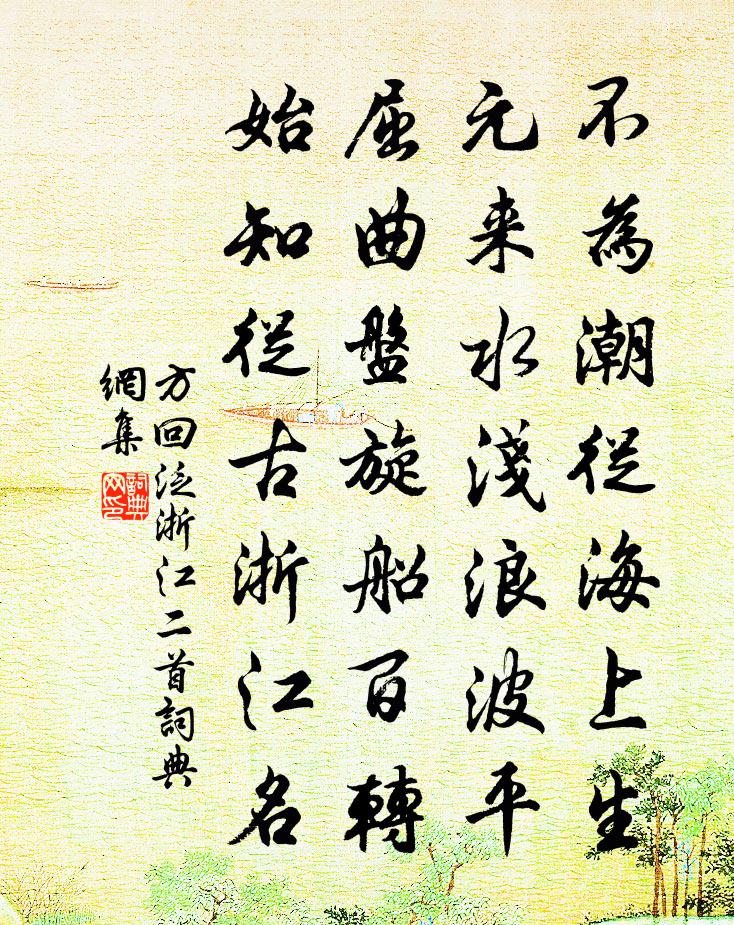 不為潮從海上生
元来水淺浪波平
屈曲盤旋船百轉
始知從古浙江名
方回泛浙江二首詞典
網集
詞典
网印